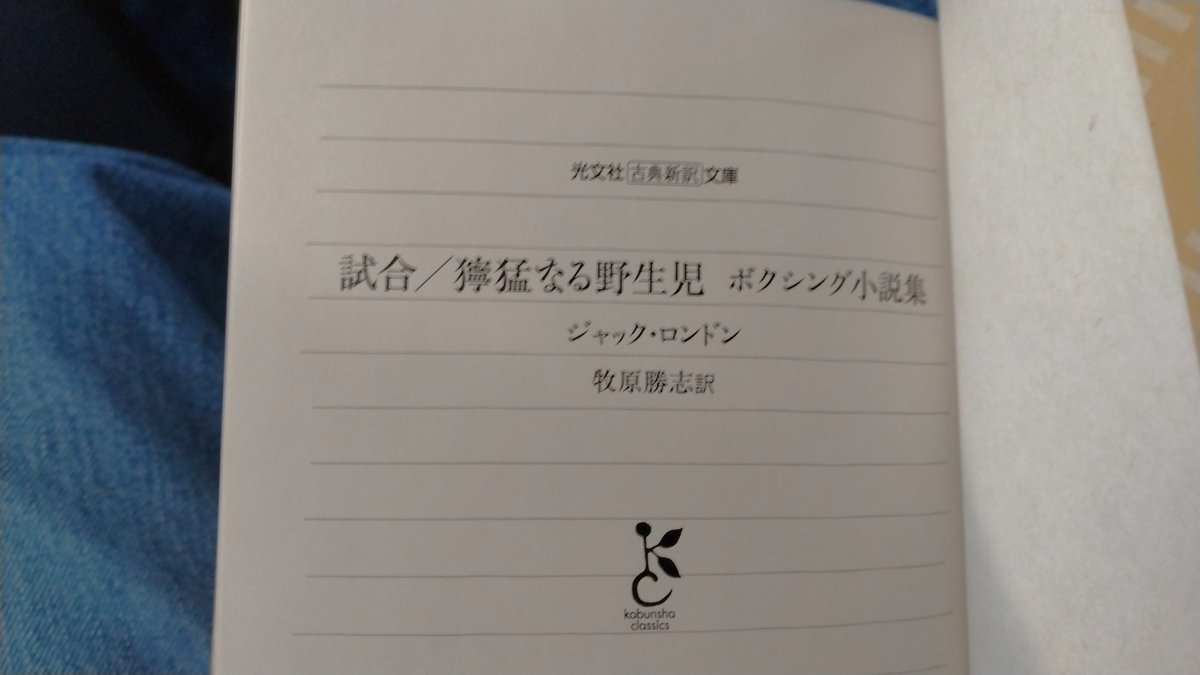 光文社古典新訳文庫
試合/獰猛なる野生児 ボクシング小説集
ジャック・ロンドン
牧原勝志訳
kobunsha
classics